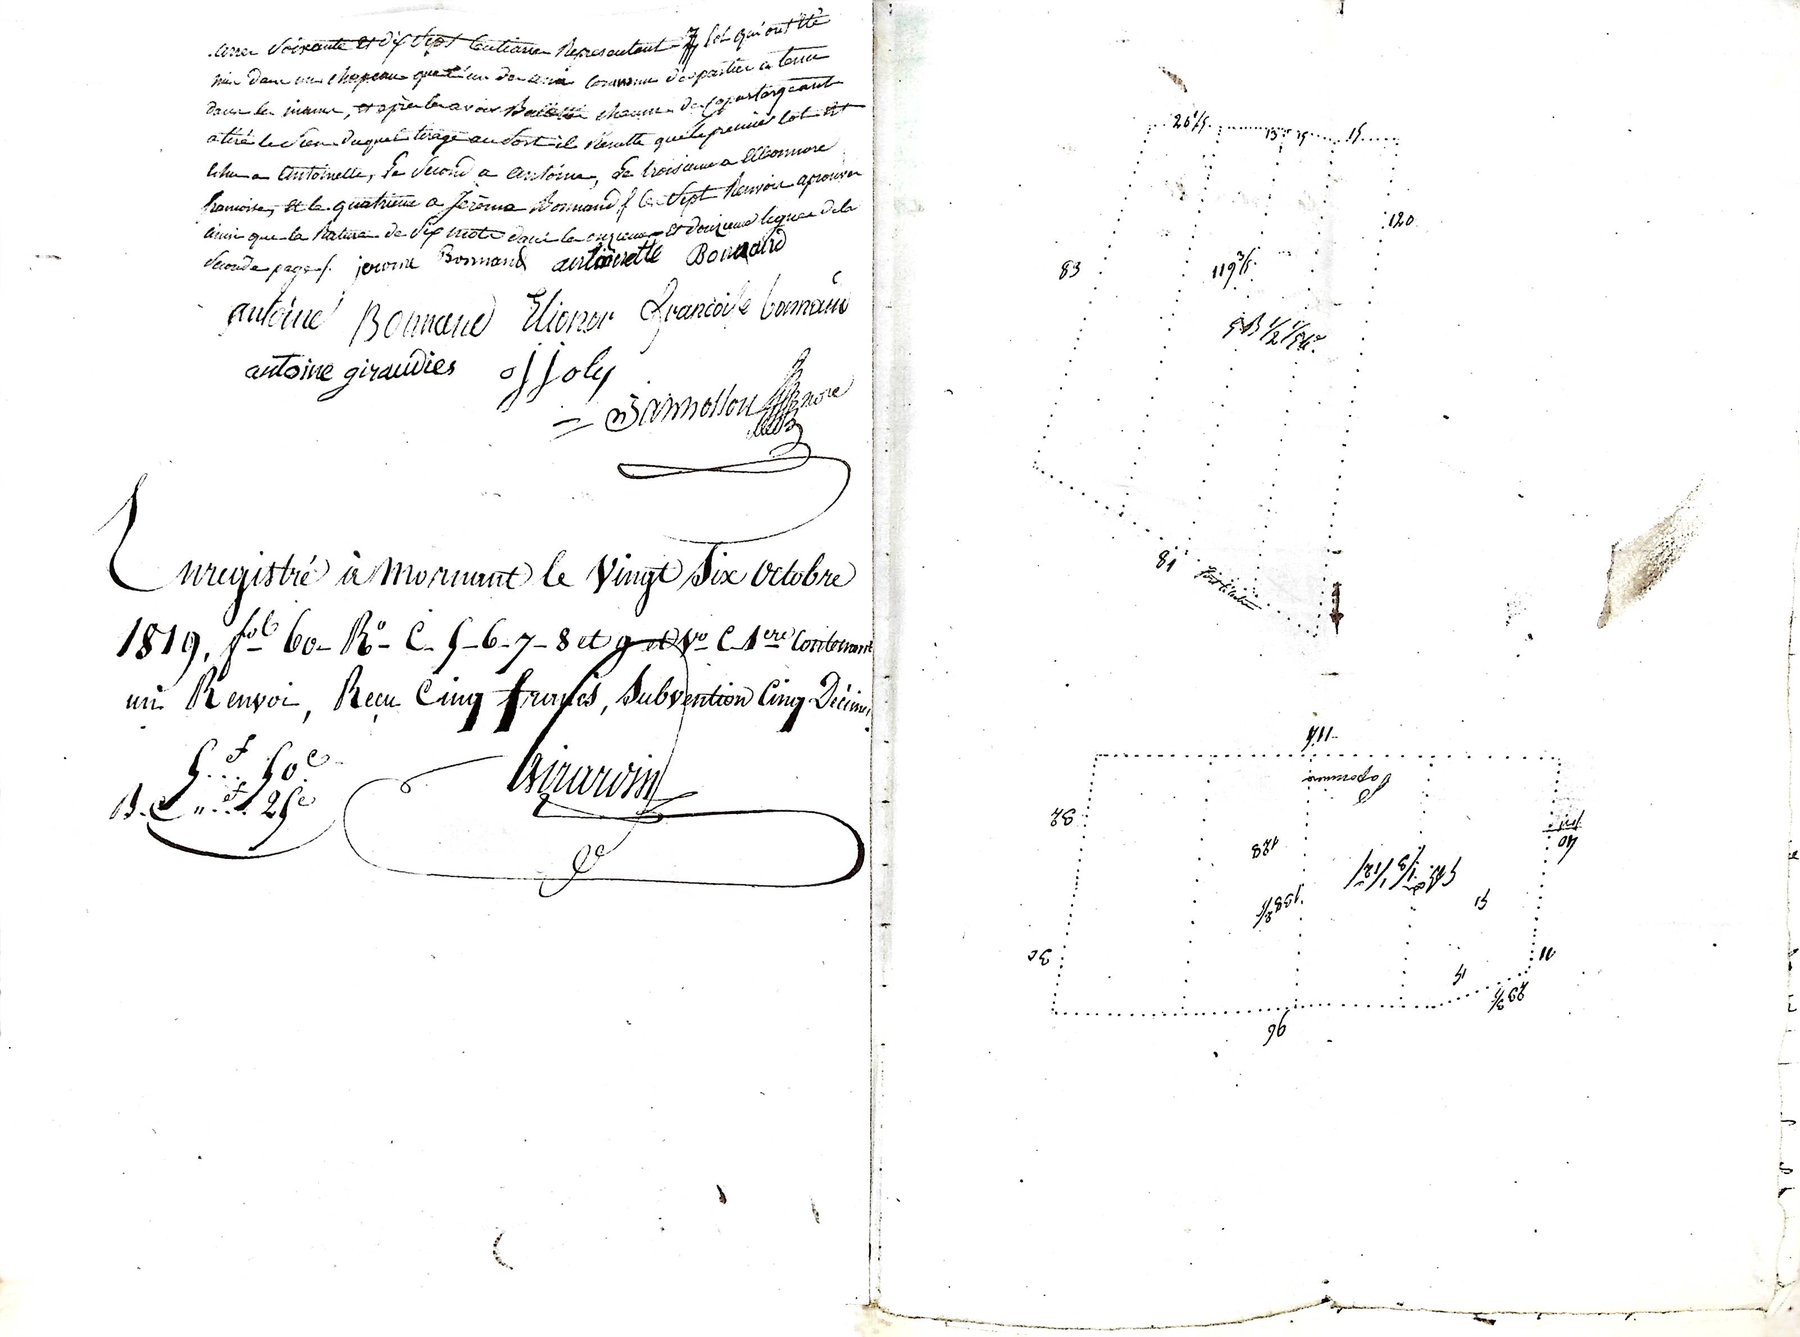 ares Soixante et dix Sept Centiares Representant lot qui ont été
mis dans un chapeau que l'un de commun
dans le meme, et après les avoir chacun des copartageant
a tiré le Sien duquel tirage au Sort il Resulte que le premier lot est
échu a Antoinette, Le Second a Antoine, Le troisieme a Eléonnore
francoise, et le quatrieme a Jérôme Bonnand / le Sept Renvoi aprouvé
ainsi que la Rature de Six mots dans le onzieme et douzieme lignes de la
Seconde page /. jerome Bonnand antoinette Bonnand
antoine Bonnand Elionor Françoise bonnand
antoine giraudier Joly
Enregistré à Mornant le Vingt Six Octobre
1819. fol 60 Ro C 5-6-7-8 et 9 et Vo C 1ere Contenant
un Renvoi, Reçu Cinq francs, Subvention Cinq Décimes
5f 50c
B. C „f 25c
Girardin
20 1/5 15 15 15
120
83
119 3/5
5B 1/2 1/56
81
114
32
128
138 2/5
5B 1/3 1/12
40
15
30
11
15
23 3/5
96